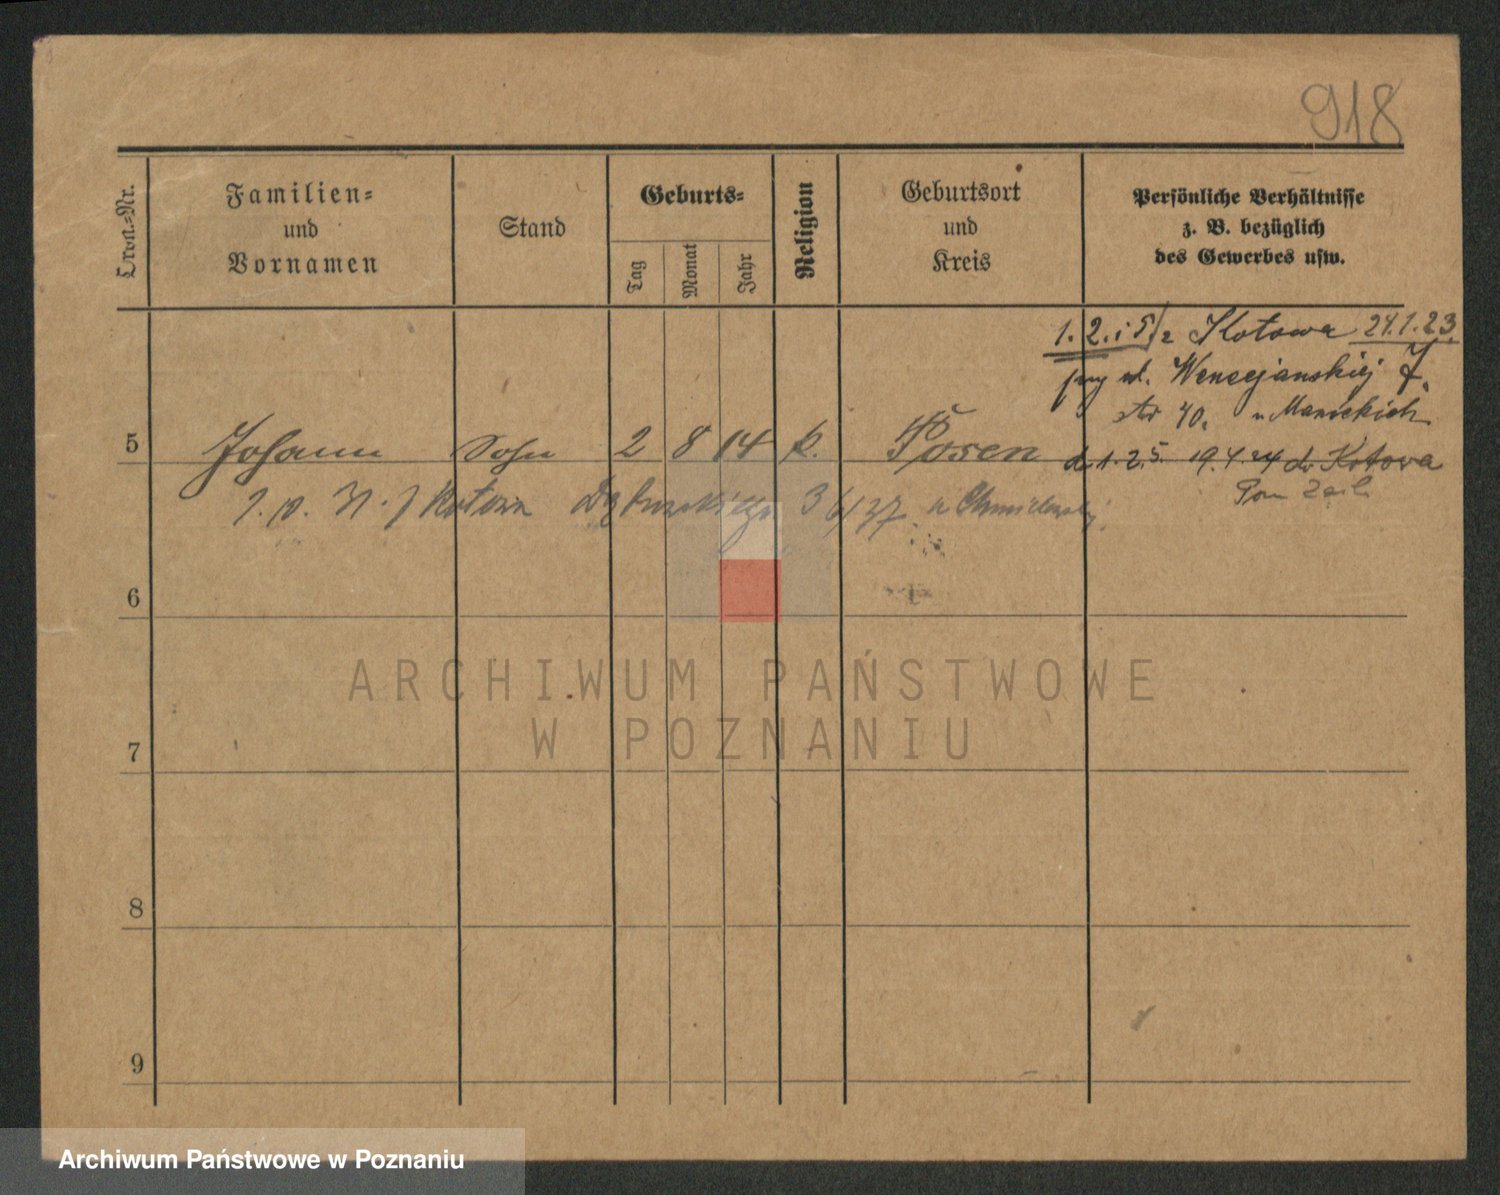 918
Ordn.-Nr.
Familien-
und
Vornamen
Stand
Geburts-
Tag
Monat
Jahr
Religion
Geburtsort
und
Kreis
Persönliche Verhältnisse
z. B. bezüglich
des Gewerbes usw.
1. 2. i 5/ z Kotowa 24.1.23.
przy ul. Wenecjanskiej 7.
40. u
5 Johann Sohn 2 8 14 k. Posen
1. 2. 5. 19.4.24 do Kotowa
Kotowa Dąbrowskiego u Chmielewskiej
6
7
8
9
ARCHIWUM PAŃSTWOWE
W POZNANIU
Archiwum Państwowe w Poznaniu